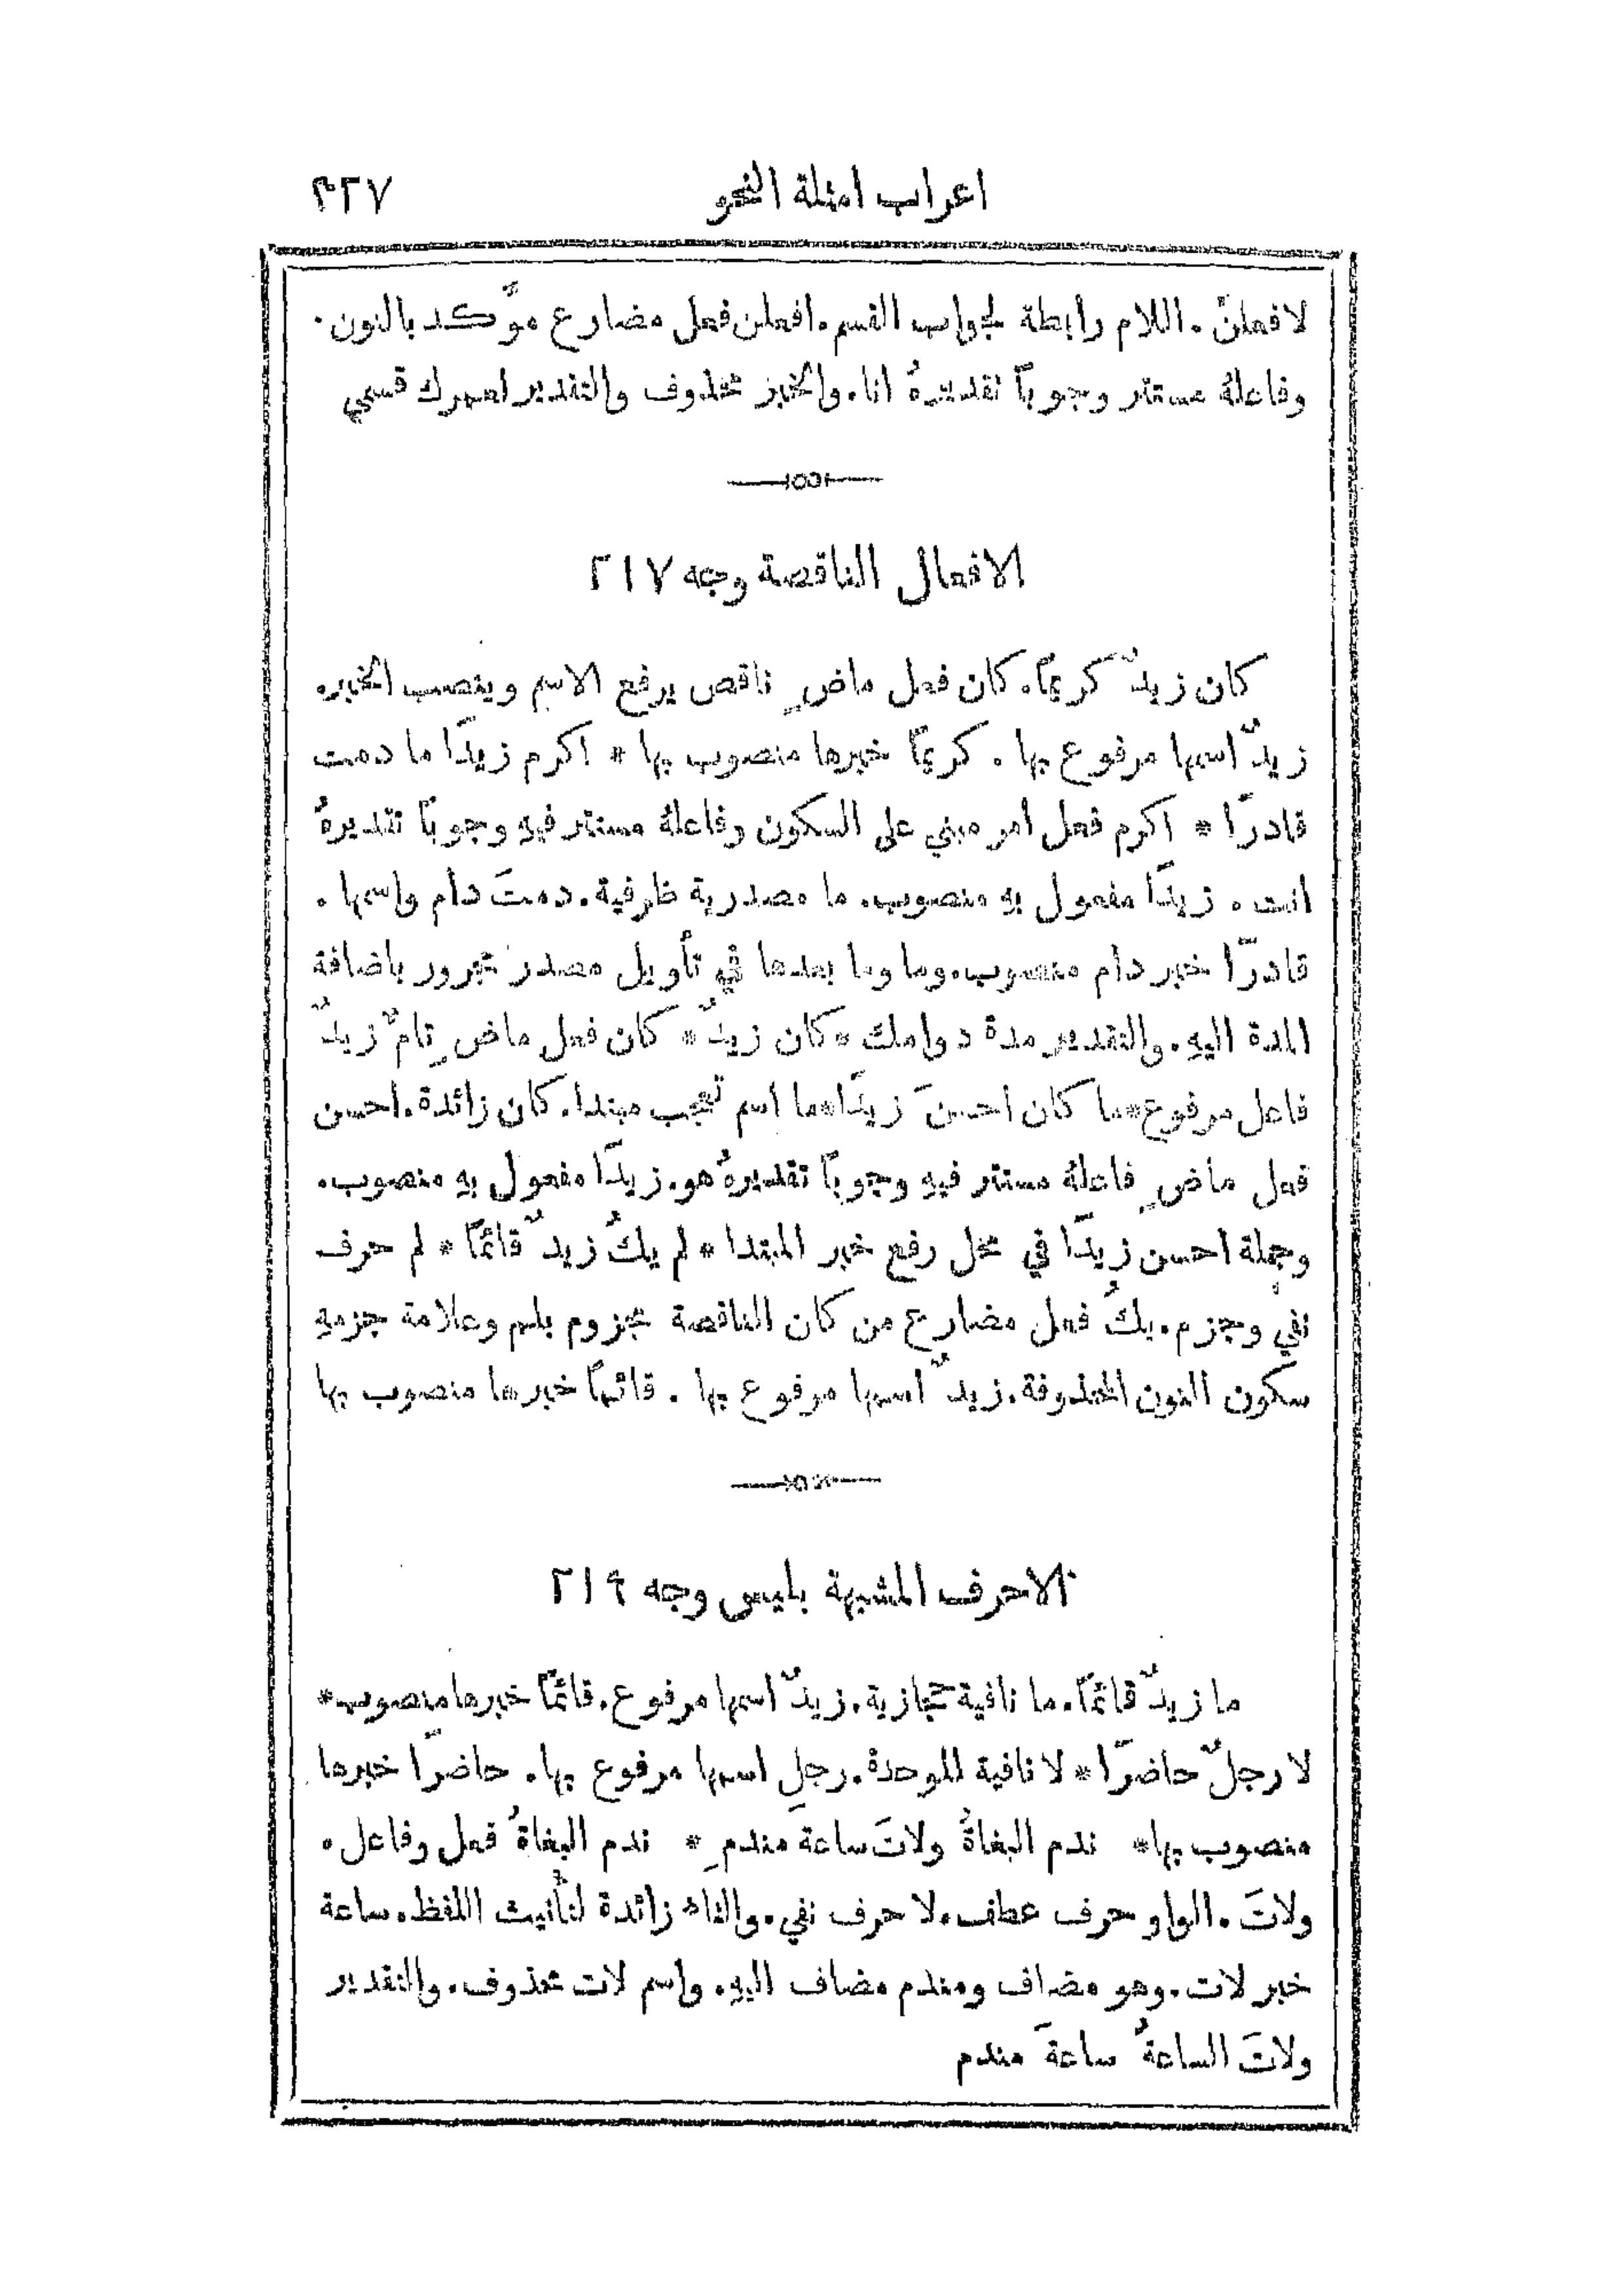 اعراب امثلة النحو ٣٢٧
لافعلنَّ. اللام رابطة لجواب القسم. افعلن فعل مضارع موَّكد بالنون.
وفاعلهُ مستتر وجوبًا تقديرهُ انا. والخبر محذوف والتقدير لعمرك قسمي
الافعال الناقصة وجه ٢١٧
كان زيدٌ كريمًا. كان فعل ماضٍ ناقص يرفع الاسم وينصب الخبر.
زيدٌ اسمها مرفوع بها. كريمًا خبرها منصوب بها * اكرم زيدًا ما دمت
قادرًا * اكرم فعل امر مبني على السكون وفاعلهُ مستتر فيهِ وجوبًا تقديرهُ
انت. زيدًا مفعول بهِ منصوب. ما مصدرية ظرفية. دمتَ دام واسمها.
قادرًا خبر دام منصوب. وما وما بعدها في تأويل مصدر مجرور باضافة
المدة اليهِ. والتقدير مدة دوامك * كان زيدٌ * كان فعل ماضٍ تامٌّ زيدٌ
فاعل مرفوع * ما كان احسنَ زيدًا * ما اسم تعجب مبتدا. كان زائدة. احسن
فعل ماضٍ فاعلهُ مستتر فيهِ وجوبًا تقديرهُ هو. زيدًا مفعول بهِ منصوب.
وجملة احسن زيدًا في محل رفع خبر المبتدا * لم يكُ زيدٌ قائمًا * لم حرف
نفيٍ وجزم. يكُ فعل مضارع من كان الناقصة مجزوم بلم وعلامة جزمهِ
سكون النون المحذوفة. زيدٌ اسمها مرفوع بها. قائمًا خبرها منصوب بها
الاحرف المشبهة بليس وجه ٢١٩
ما زيدٌ قائمًا. ما نافية حجازية. زيدٌ اسمها مرفوع. قائمًا خبرها منصوب *
لا رجلٌ حاضرًا * لا نافية للوحدة. رجل اسمها مرفوع بها. حاضرًا خبرها
منصوب بها * ندم البغاةُ ولاتَ ساعةَ مندمِ * ندم البغاةُ فعل وفاعل.
ولاتَ. الواو حرف عطف. لا حرف نفي. والتاء زائدة لتأنيث اللفظ. ساعة
خبر لات. وهو مضاف ومندم مضاف اليهِ. واسم لات محذوف. والتقدير
ولاتَ الساعةُ ساعةَ مندم